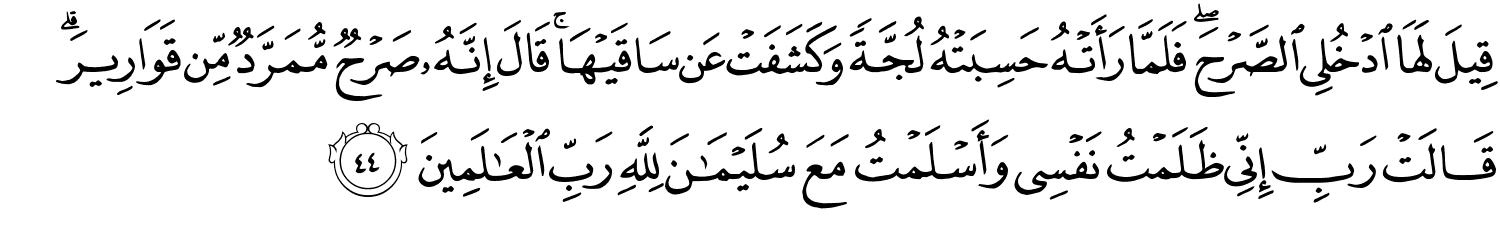 قِيلَ لَهَا ٱدۡخُلِي ٱلصَّرۡحَۖ فَلَمَّا رَأَتۡهُ حَسِبَتۡهُ لُجَّةٗ وَكَشَفَتۡ عَن سَاقَيۡهَاۚ قَالَ إِنَّهُۥ صَرۡحٞ مُّمَرَّدٞ مِّن قَوَارِيرَۗ
قَالَتۡ رَبِّ إِنِّي ظَلَمۡتُ نَفۡسِي وَأَسۡلَمۡتُ مَعَ سُلَيۡمَٰنَ لِلَّهِ رَبِّ ٱلۡعَٰلَمِينَ ٤٤